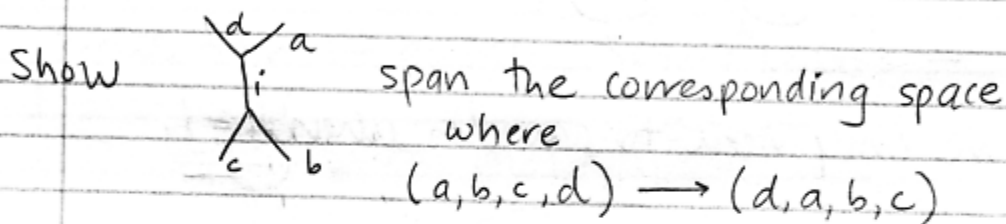 d a
Show i span the corresponding space
where
c b
(a,b,c,d) ⟶ (d,a,b,c)